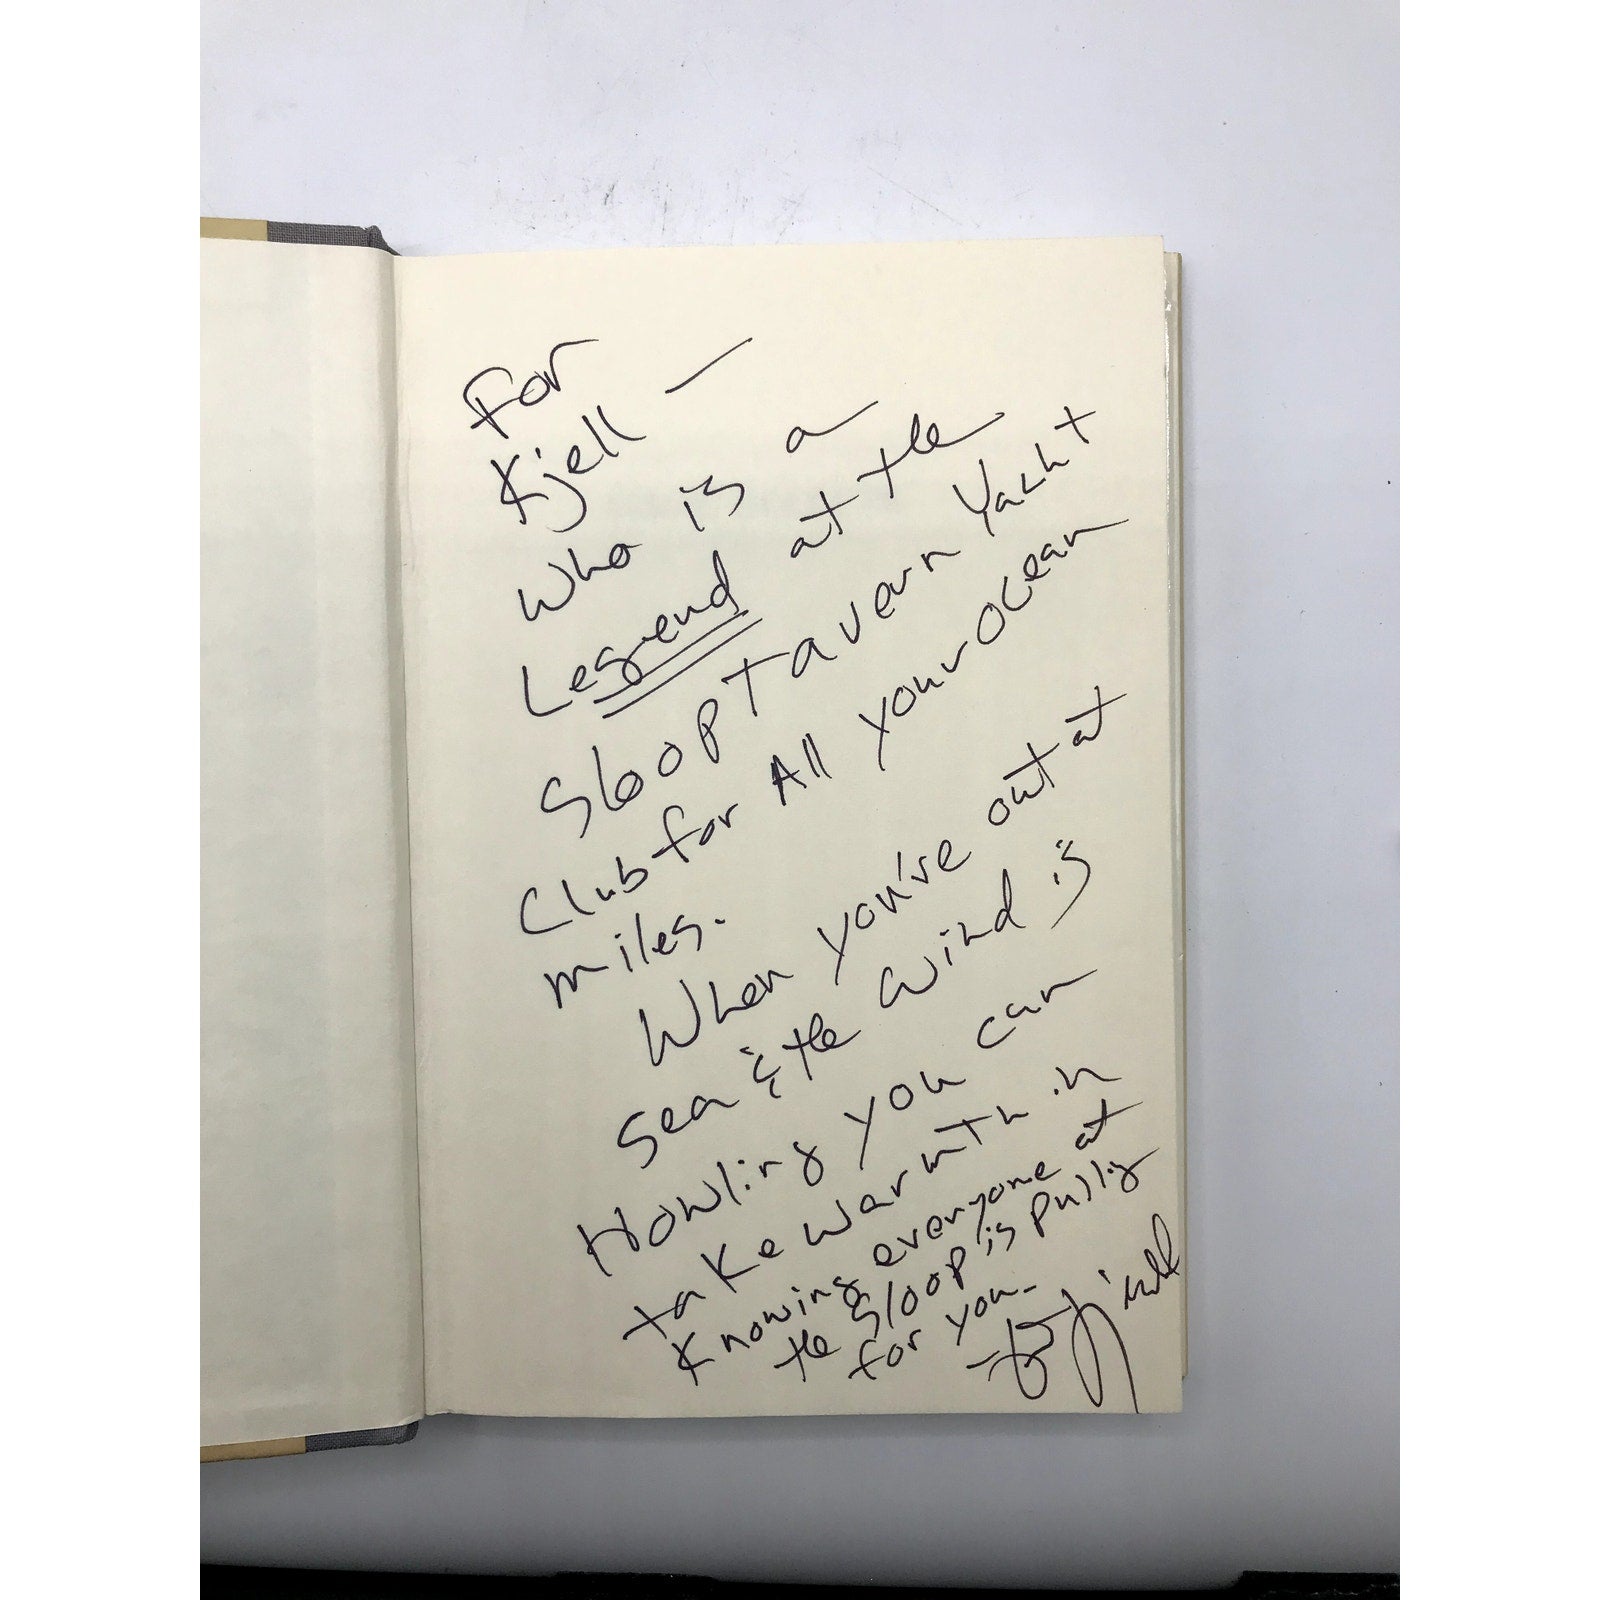 For
Kjell —
Who is a
Legend at the
Sloop Tavern Yacht
Club for All your ocean
miles.
When you're out at
sea & the wind is
Howling you can
take warmth in
Knowing everyone at
the Sloop is pulling
for you -